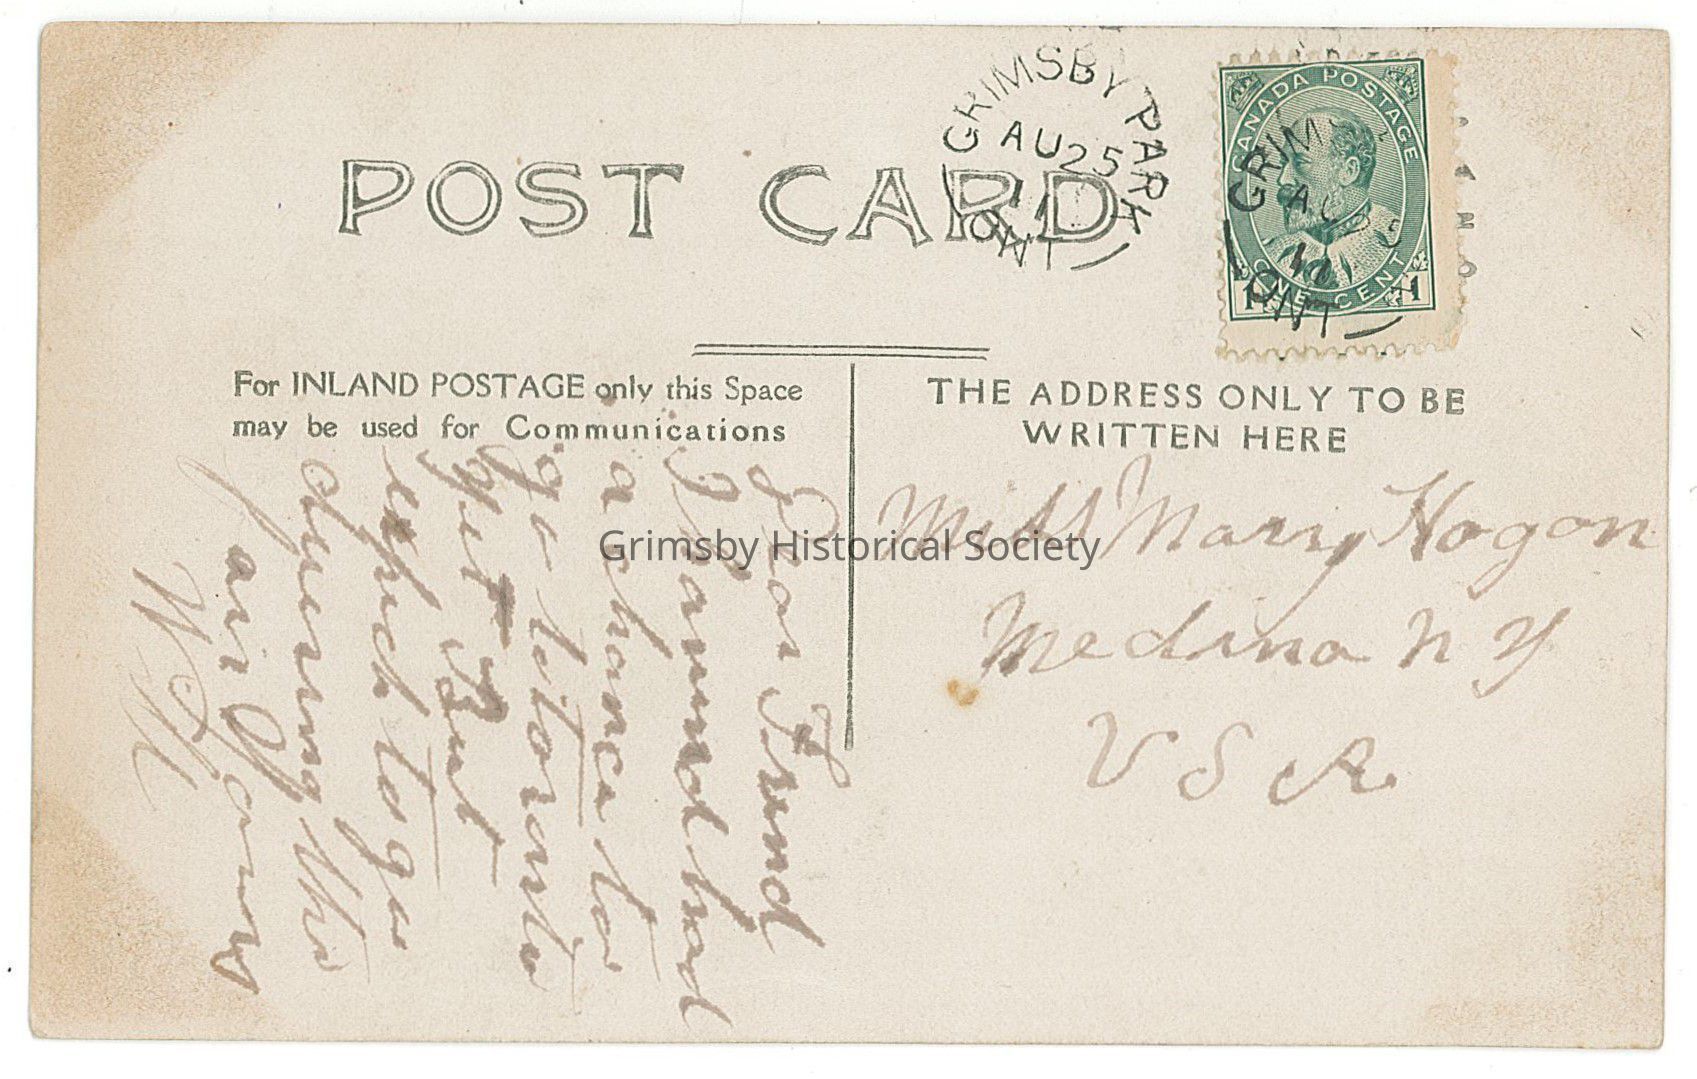 POST CARD
GRIMSBY PARK
AU 25
11
ONT
CANADA POSTAGE
GRIMS
AU 25
11
ONT
1 ONE CENT 1
For INLAND POSTAGE only this Space
may be used for Communications
THE ADDRESS ONLY TO BE
WRITTEN HERE
Dear Friend
I have not had
a chance to
go to toronto
yet But
expect to go
during the
air Yours
W H
Miss Mary Hogon
Medina N Y
U S A
Grimsby Historical Society